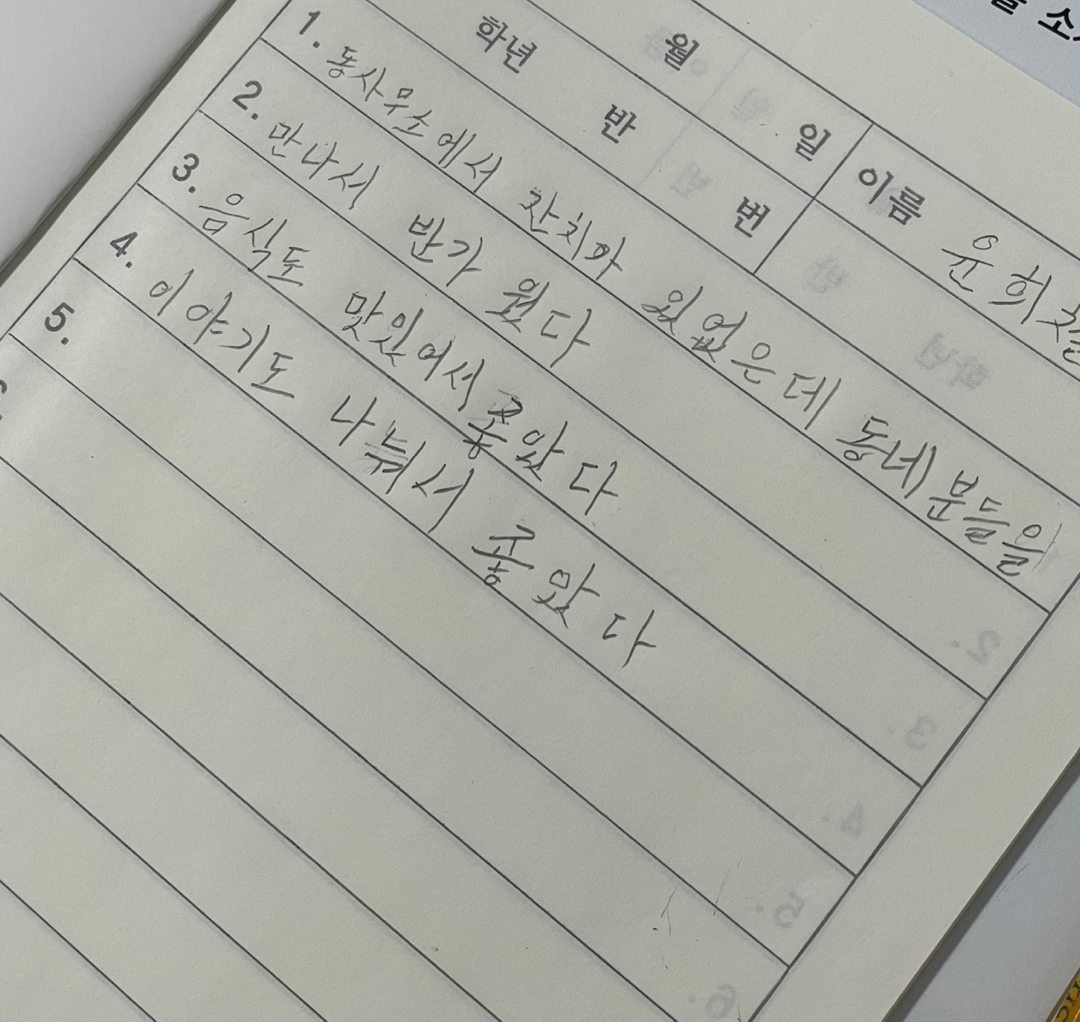 월 일 이름 윤희철
학년 반 번
1. 동사무소에서 잔치가 있없은데 동네분들을
2. 만나서 반가 웠다
3. 음식도 맛있어서 좋았다
4. 이야기도 나눠서 좋았다
5.